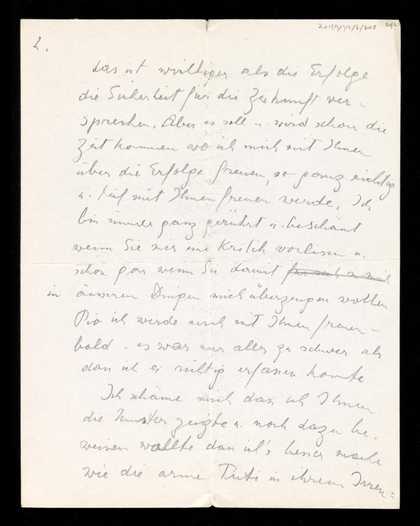 2.
das ist wichtiger als die Erfolge
die Sicherheit für die Zukunft ver-
sprechen. Aber es soll u. wird schon die
Zeit kommen wo ich mich mit Ihnen
über die Erfolge freuen, so ganz richtig
u. tief mit Ihnen freuen werde. Ich
bin immer ganz gerührt u. beschämt
wenn Sie mir eine Kritik vorlesen u.
schon gar wenn Sie damit
in äusseren Dingen mich überzeugen wollen
ich werde mich mit Ihnen freuen
bald - es war nur alles zu schwer als
dass ich es richtig erfassen konnte
Ich schäme mich dass ich Ihnen
die Muster zeigte u. noch dazu be-
weisen wollte dass ich's besser mache
wie die arme in ihrem